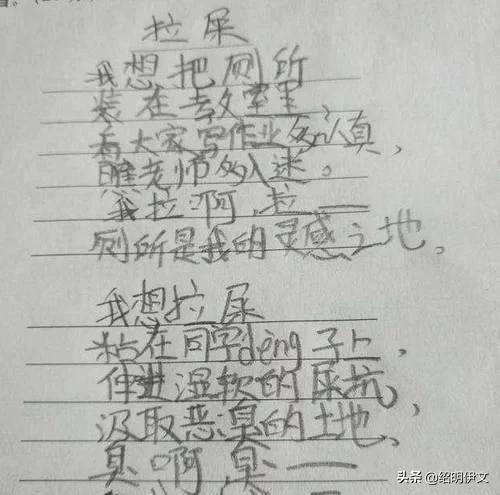 拉屎
我想把厕所
装在教室里
看大家写作业多认真，
瞧老师多入迷。
我拉啊，拉——
厕所是我的灵感之地，
我想拉屎
粘在同学dèng子上，
伸进湿软的屎坑，
汲取恶臭的土地，
臭啊臭——
头条 @绍明伊文